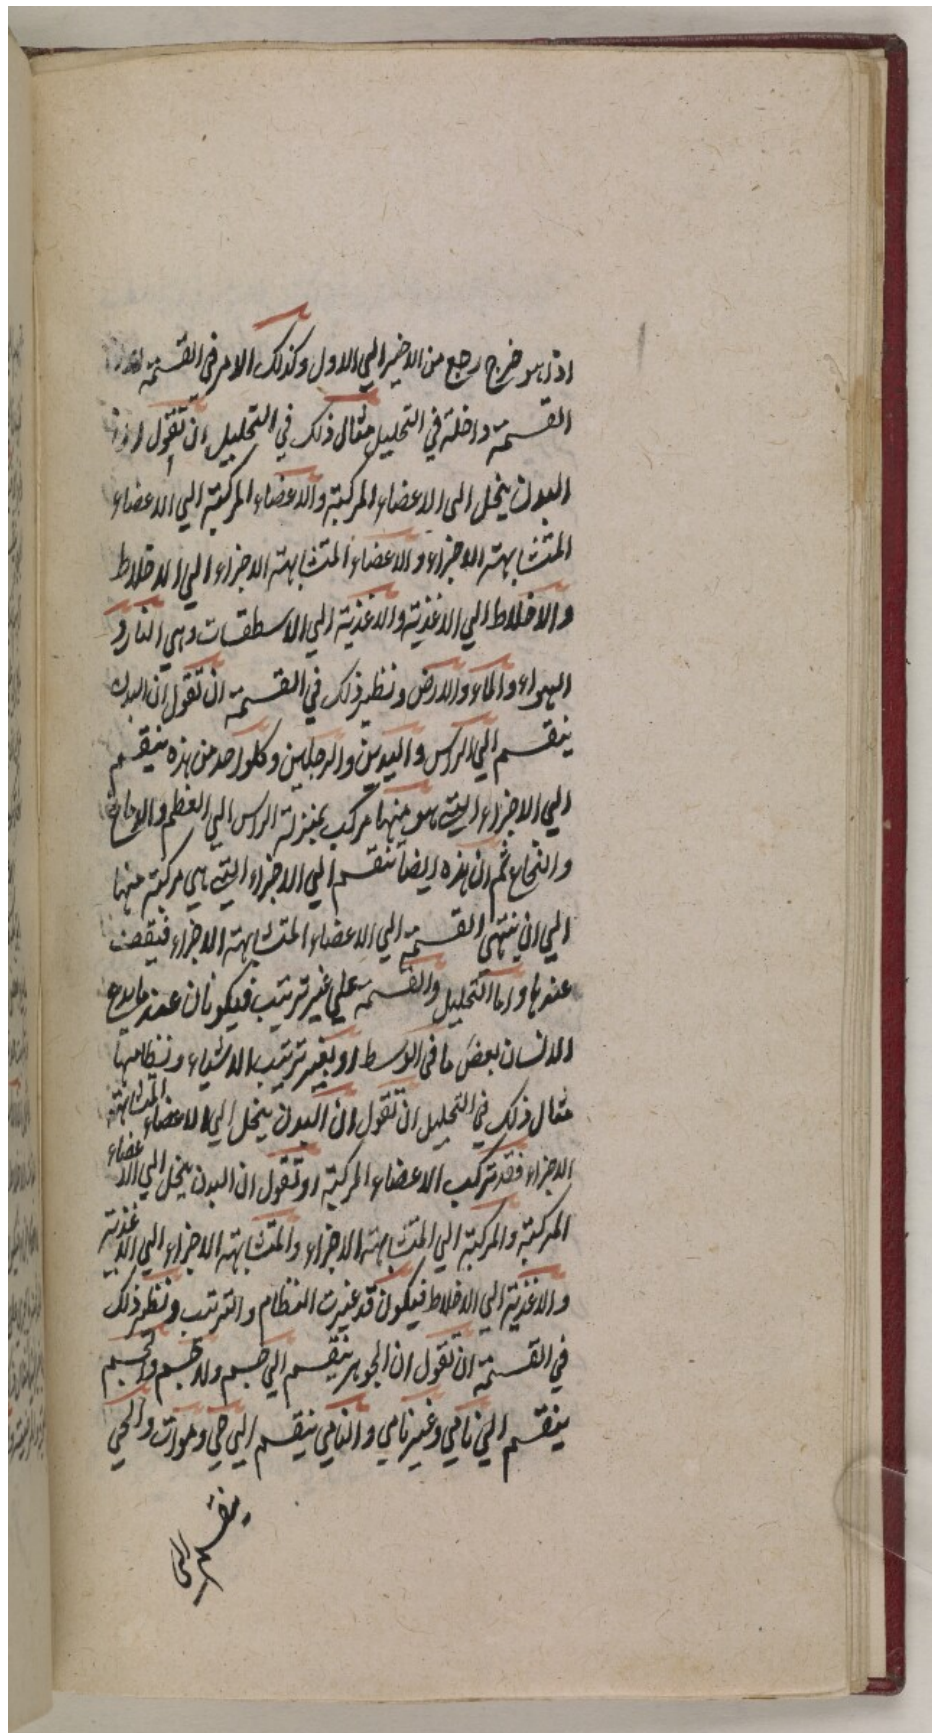 اذا هو خرج رجع من الاخير الي الاول وكذلك الامر في القسمة
القسمة داخلة في التحليل مثال ذلك في التحليل ان تقول ان
البدن ينحل الى الاعضاء المركبة والاعضاء المركبة الي الاعضاء
المتشابهة الاجزاء والاعضاء المتشابهة الاجزاء الي الاخلاط
والاخلاط الي الاغذية والاغذية الي الاسطقسات وهي النار و
الهواء والماء والارض ونظير ذلك في القسمة ان تقول ان البدن
ينقسم الي الراس واليدين والرجلين وكلواحد من هذه ينقسم
الي الاجزاء التي هو منها مركب بمنزلة الراس الي العظم والدماغ
والنخاع ثم ان هذه ايضا تنقسم الي الاجزاء التي هي مركبة منها
الي ان ينتهي القسمة الي الاعضاء المتشابهة الاجزاء فيقف
عندها واما التحليل والقسمة علي غير ترتيب فيكونان عند ما يدع
الانسان بعض ما في الوسط او بغير ترتيب الاشياء ونظامها
مثال ذلك في التحليل ان تقول ان البدن ينحل الي الاعضاء المتشابهة
الاجزاء فقد ترك الاعضاء المركبة او تقول ان البدن ينحل الي الاعضاء
المركبة والمركبة الي المتشابهة الاجزاء والمتشابهة الاجزاء الي الاغذية
والاغذية الي الاخلاط فيكون قد غيرت النظام والترتيب ونظير ذلك
في القسمة ان تقول ان الجوهر ينقسم الي جسم ولا جسم والجسم
ينقسم الي نامي وغير نامي والنامي ينقسم الي حي وموات والحي
ينقسم الي